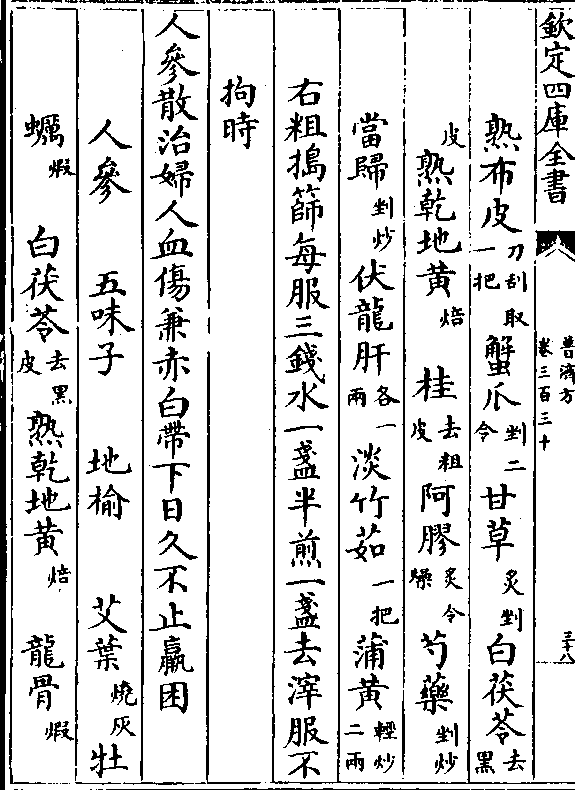 欽定四庫全書 普濟方 卷三百三十 三十八
熟布皮 刀刮取一把 蟹爪 剉二令 甘草 炙剉 白茯苓 去黑
皮 熟乾地黃 焙 桂 去粗皮 阿膠 炙令燥 芍藥 剉炒
當歸 剉炒 伏龍肝 各一兩 淡竹茹 一把 蒲黃 輕炒二兩
右粗搗篩每服三錢水一盞半煎一盞去滓服不
拘時
人參散治婦人血傷兼赤白帶下日久不止羸困
人參 五味子 地榆 艾葉 燒灰 牡
蠣 煆 白茯苓 去黑皮 熟乾地黃 焙 龍骨 煆